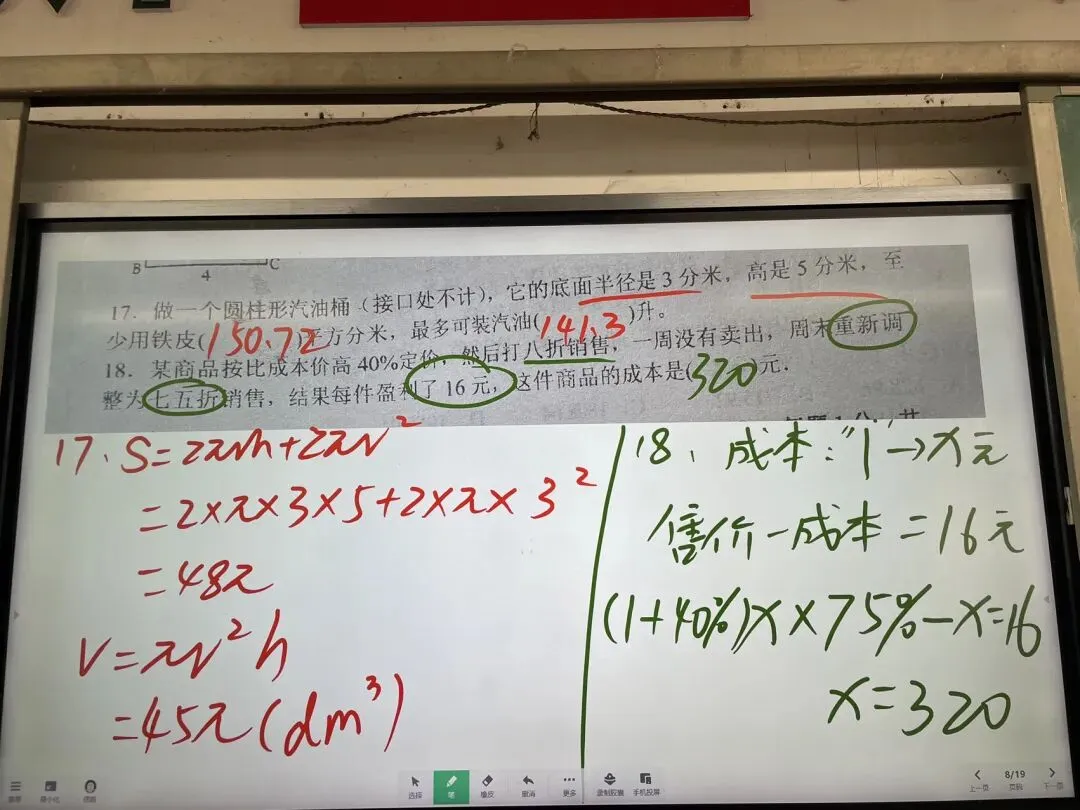 B C
4
17. 做一个圆柱形汽油桶（接口处不计），它的底面半径是3分米，高是5分米，至
少用铁皮(150.72)平方分米，最多可装汽油(141.3)升。
18. 某商品按比成本价高40%定价，然后打八折销售，一周没有卖出，周末重新调
整为七五折销售，结果每件盈利了16元，这件商品的成本是(320)元.
17、S=2πrh+2πr²
=2×π×3×5+2×π×3²
=48π
V=πr²h
=45π(dm³)
18、成本："1→x元
售价-成本=16元
(1+40%)x×75%-x=16
x=320
选择 笔 橡皮 撤消 更多 录制胶囊 手机投屏
8/19
上一页 页码 下一页